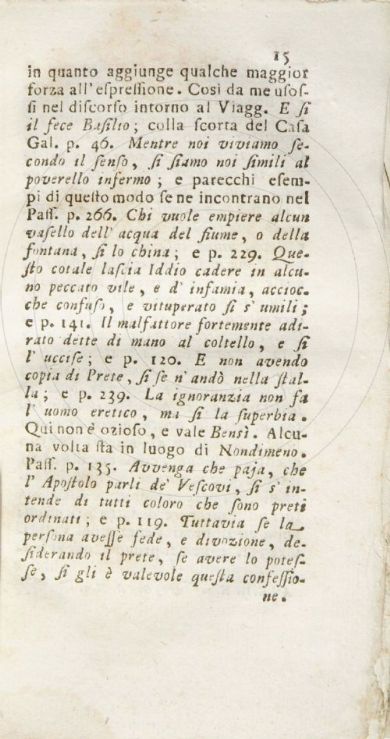 15
in quanto aggiunge qualche maggior
forza all' espressione. Così da me usos-
si nel discorso intorno al Viagg. E si
il fece Basilio; colla scorta del Casa
Gal. p. 46. Mentre noi viviamo se-
condo il senso, si siamo noi simili al
poverello infermo; e parecchi esem-
pi di questo modo se ne incontrano nel
Pass. p. 266. Chi vuole empiere alcun
vasello dell' acqua del fiume, o della
fontana, si lo china; e p. 229. Que-
sto cotale lascia Iddio cadere in alcu-
no peccato vile, e d' infamia, accioc-
che confuso, e vituperato si s' umili;
e p. 141. Il malfattore fortemente adi-
rato dette di mano al coltello, e si
l' uccise; e p. 120. E non avendo
copia di Prete, si se n' andò nella stal-
la; e p. 239. La ignoranzia non fa
l' uomo eretico, ma si la superbia.
Qui non è ozioso, e vale Bensì. Alcu-
na volta sta in luogo di Nondimeno.
Pass. p. 135. Avvenga che paja, che
l' Apostolo parli de' Vescovi, si s' in-
tende di tutti coloro che sono preti
ordinati; e p. 119. Tuttavia se la
persona avesse fede, e divozione, de-
siderando il prete, se avere lo potes-
se, si gli è valevole questa confessio-
ne.